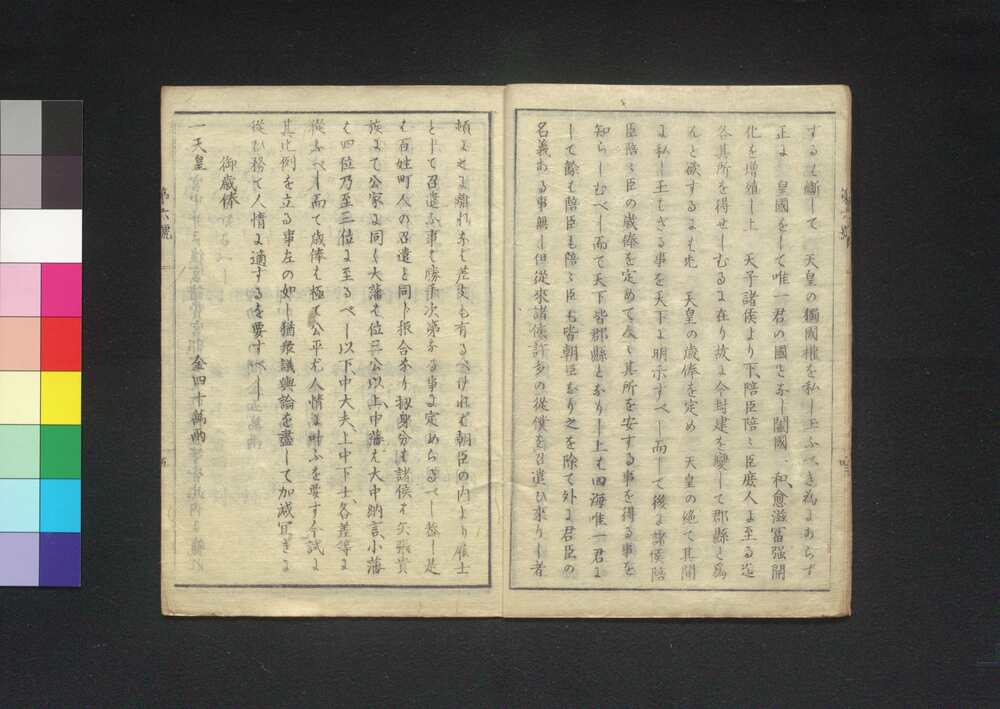 するも斷して 天皇の獨國權を私し玉ふべき為にあらず
正に 皇國をして唯一君の國となし闔國一和愈滋富强開
化を增殖し上 天子諸侯より下陪臣陪々臣庶人に至る迄
各其所を得せしむるに在り故に今封建を變して郡縣と為
んと欲するにも先 天皇の歳俸を定め 天皇の絶て其間
に私し玉はざる事を天下に明示すべし而して後に諸侯陪
臣陪々臣の歳俸を定めて人々其所を安する事を得る事を
知らしむべし而て天下皆郡縣となりし上は四海唯一君に
して餘は陪臣も陪々臣も皆朝臣なり之を除て外に君臣の
名義ある事無し但從來諸侯許多の從僕を召遣ひ來りし者
頓に離れなは差支も有るべけれは朝臣の内より雇士
として召遣ふ事は勝手次第なる事に定めらるべし是
は百姓町人の召遣と同し振合なり扨身分は諸侯は矢張貴
族にて公家に同し大藩は位三公以上中藩は大中納言小藩
は四位乃至三位に至るべし以下中大夫上中下士各差等に
從ふべし而て歳俸は極て公平にて人情に叶ふを要す今試に
其比例を立る事左の如し猶衆議輿論を盡して加減冝きに
從ひ務て人情に適するを要すべし
御歳俸
一天皇 金四十萬兩
第六號